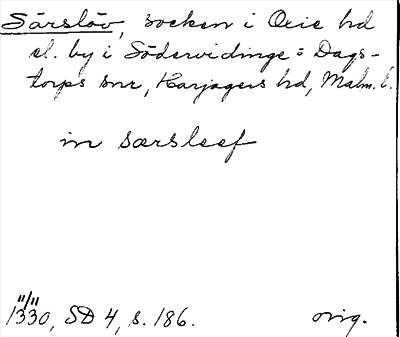 Särslöv, socken i Oxie hd
el. by i Södervidinge = Dags-
torps snr, Harjagers hd, Malm. l.
in særsleef
11/11
1330, SD 4, s. 186. orig.